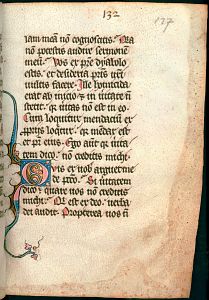 132
127
iam meā nō cognoscitis. Qa
nō potestis audire sermonē
meū. Vos ex pr̄e dyabolo
estis. et desideria
vultis facere. Ille homicida
erat ab inicio. et in veritate nō
stetit. quia nō est veritas in eo.
Cum loquitur mendaciū ex
propriis loquitur. quia mendax est
et pr̄ eius. Ego aut quia veritatem
dico. nō creditis michi.
Quis ex vobis arguet me
de pctō. Si veritatem
dico. quare nos nō creditis
michi. Qui est ex deo. verba
dei audit. Propterea vos nō